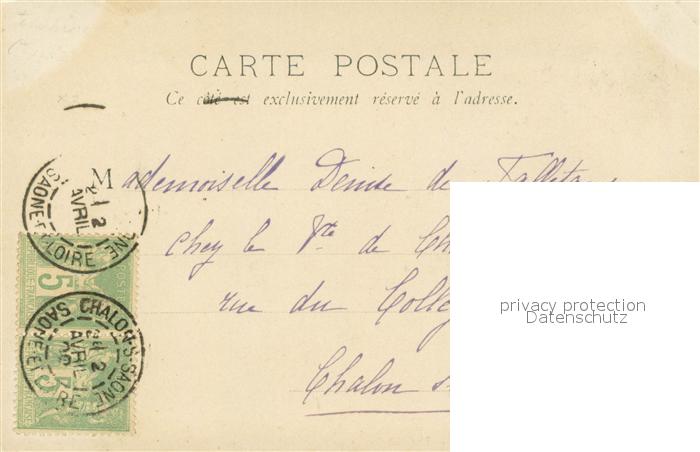 CARTE POSTALE
Ce côté est exclusivement réservé à l'adresse.
Mademoiselle Denise de
chez le Vte de Ch
rue du Colleg
Chalon s
privacy protection
Datenschutz
SAONE-ET-LOIRE
2
AVRIL
5
CHALON-S-SAONE
SAONE-ET-LOIRE
2
AVRIL
5